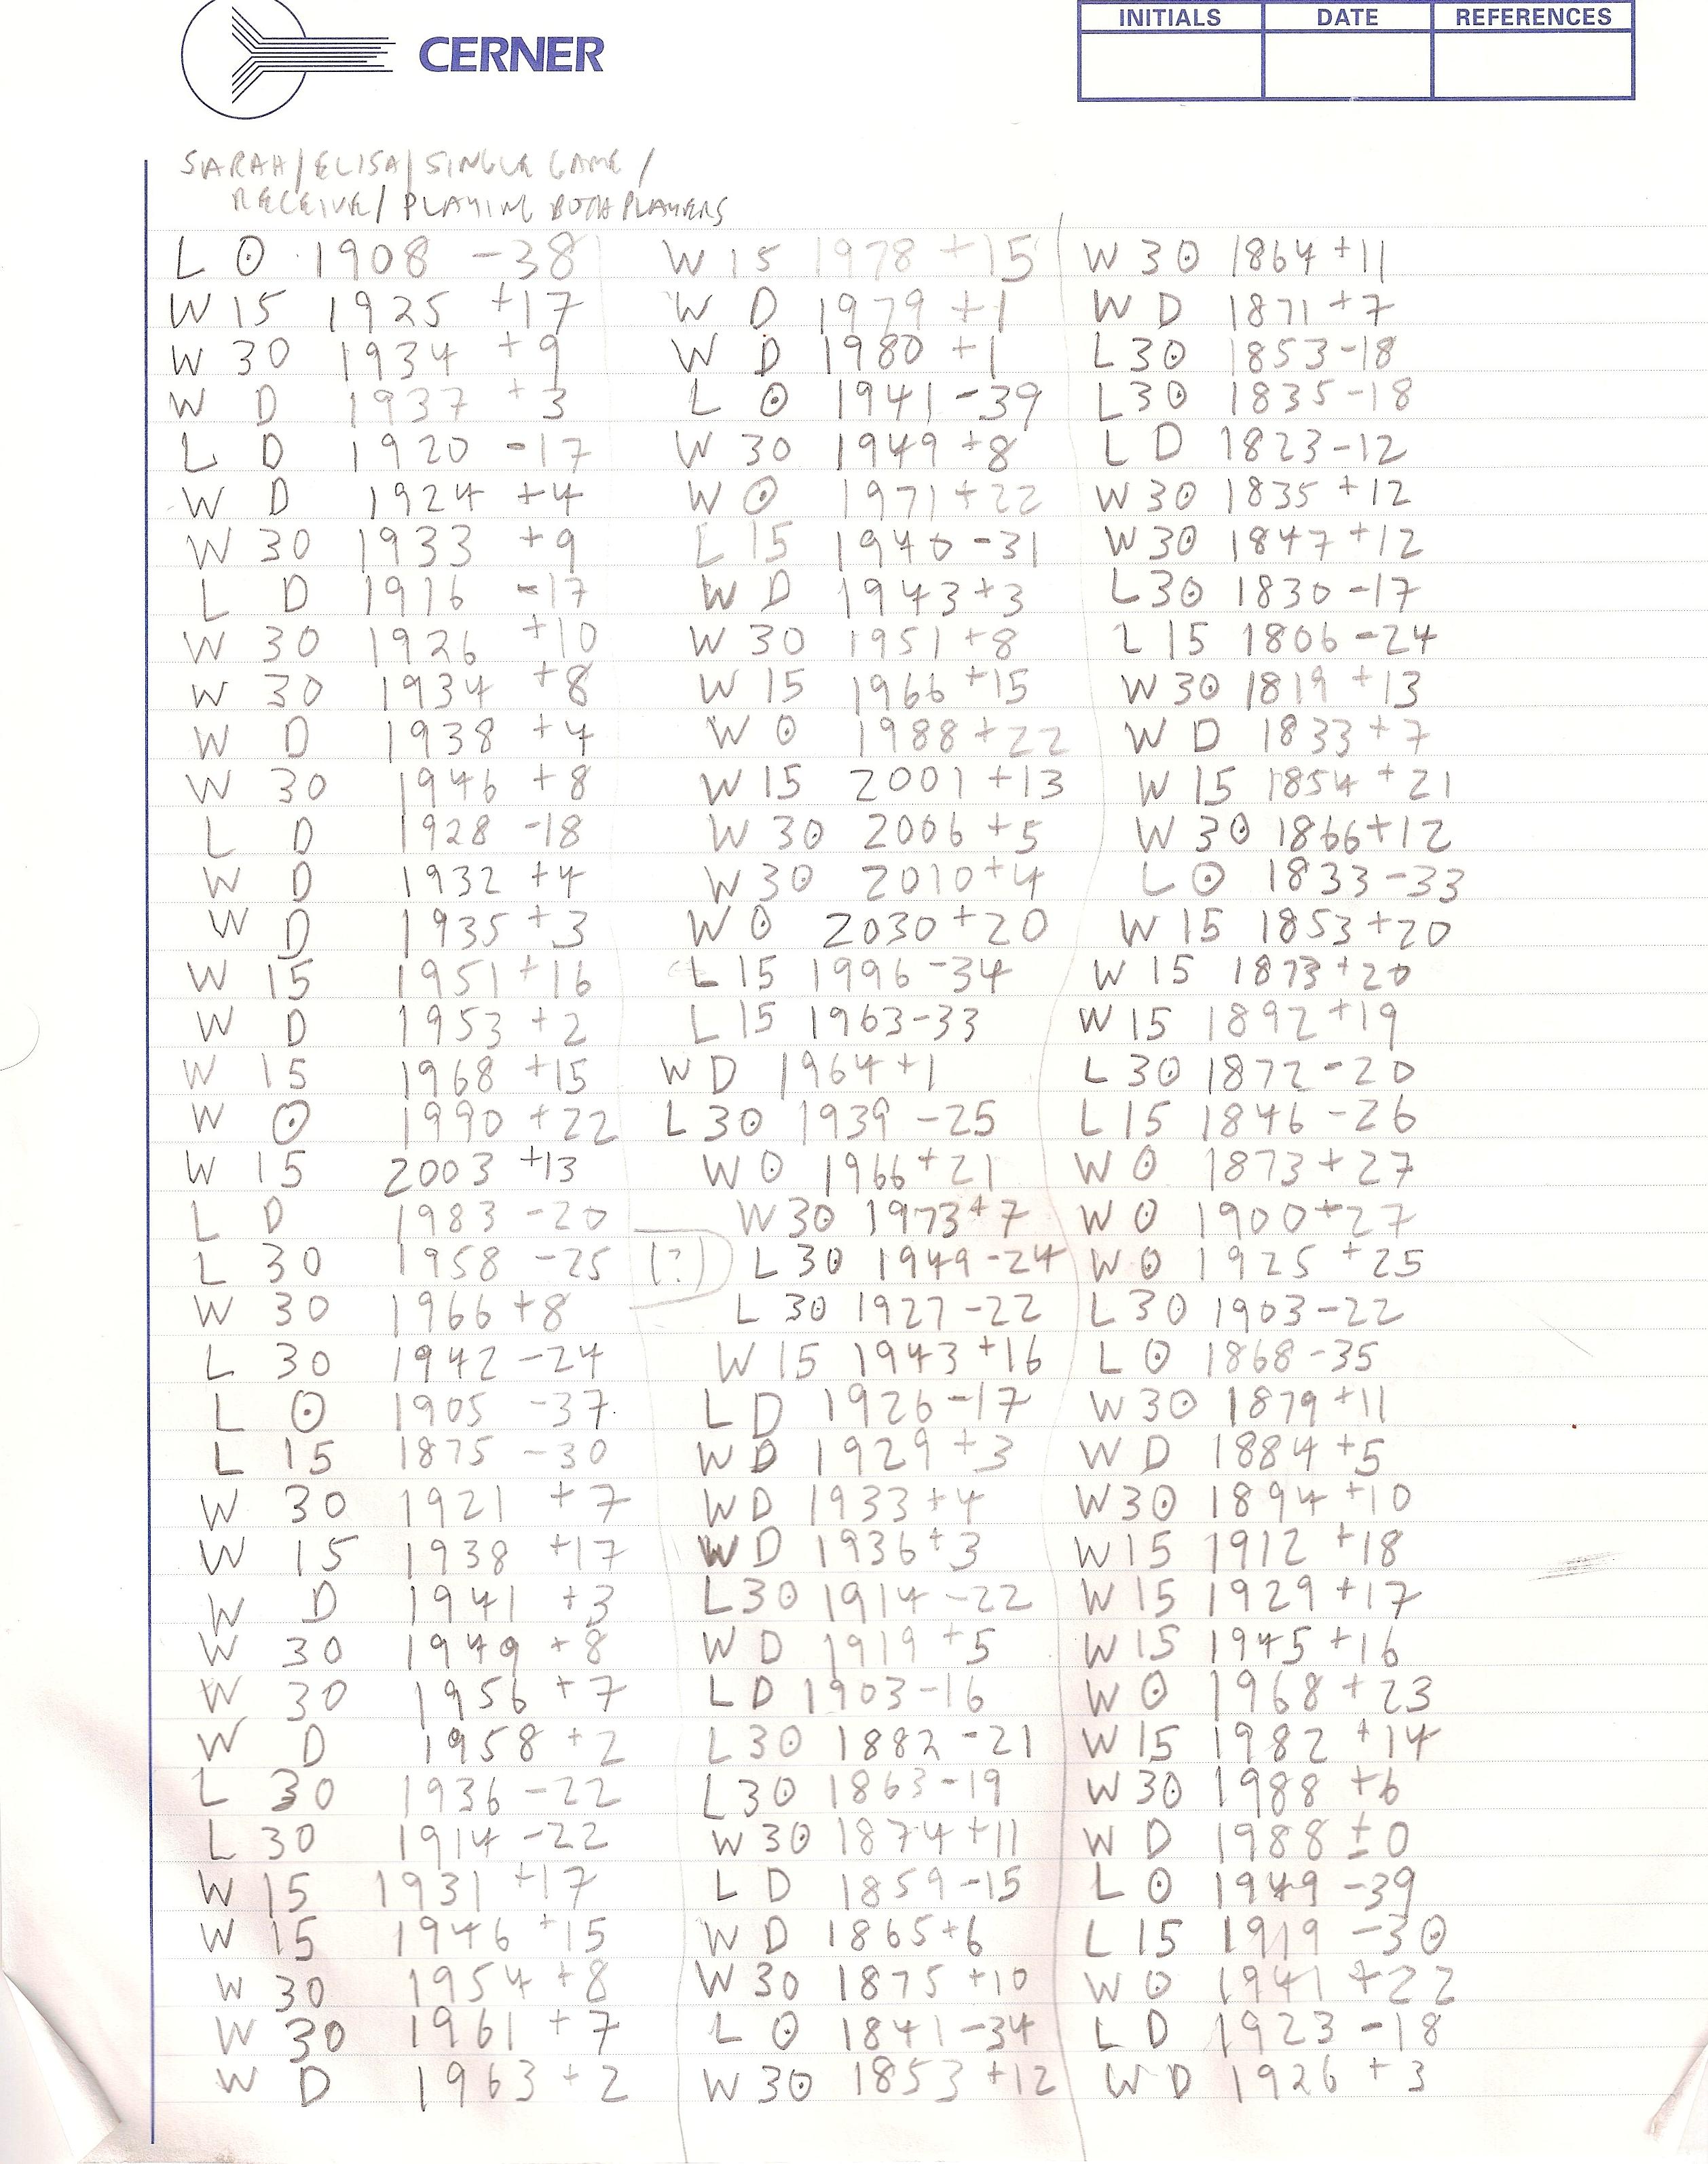 CERNER
INITIALS DATE REFERENCES
SARAH/ELISA/SINGLE GAME/
RECEIVE/PLAYING BOTH PLAYERS
L 0 1908 -38
W 15 1925 +17
W 30 1934 +9
W D 1937 +3
L D 1920 -17
W D 1924 +4
W 30 1933 +9
L D 1916 -17
W 30 1926 +10
W 30 1934 +8
W D 1938 +4
W 30 1946 +8
L D 1928 -18
W D 1932 +4
W D 1935 +3
W 15 1951 +16
W D 1953 +2
W 15 1968 +15
W 0 1990 +22
W 15 2003 +13
L D 1983 -20
L 30 1958 -25
W 30 1966 +8
L 30 1942 -24
L 0 1905 -37
L 15 1875 -30
W 30 1921 +7
W 15 1938 +17
W D 1941 +3
W 30 1949 +8
W 30 1956 +7
W D 1958 +2
L 30 1936 -22
L 30 1914 -22
W 15 1931 +17
W 15 1946 +15
W 30 1954 +8
W 30 1961 +7
W D 1963 +2
W 15 1978 +15
W D 1979 +1
W D 1980 +1
L 0 1941 -39
W 30 1949 +8
W 0 1971 +22
L 15 1940 -31
W D 1943 +3
W 30 1951 +8
W 15 1966 +15
W 0 1988 +22
W 15 2001 +13
W 30 2006 +5
W 30 2010 +4
W 0 2030 +20
L 15 1996 -34
L 15 1963 -33
W D 1964 +1
L 30 1939 -25
W 0 1966 +21
W 30 1973 +7
(?) L 30 1949 -24
L 30 1927 -22
W 15 1943 +16
L D 1926 -17
W D 1929 +3
W D 1933 +4
W D 1936 +3
L 30 1914 -22
W D 1919 +5
L D 1903 -16
L 30 1882 -21
L 30 1863 -19
W 30 1874 +11
L D 1859 -15
W D 1865 +6
W 30 1875 +10
L 0 1841 -34
W 30 1853 +12
W 30 1864 +11
W D 1871 +7
L 30 1853 -18
L 30 1835 -18
L D 1823 -12
W 30 1835 +12
W 30 1847 +12
L 30 1830 -17
L 15 1806 -24
W 30 1819 +13
W D 1833 +7
W 15 1854 +21
W 30 1866 +12
L 0 1833 -33
W 15 1853 +20
W 15 1873 +20
W 15 1892 +19
L 30 1872 -20
L 15 1846 -26
W 0 1873 +27
W 0 1900 +27
W 0 1925 +25
L 30 1903 -22
L 0 1868 -35
W 30 1879 +11
W D 1884 +5
W 30 1894 +10
W 15 1912 +18
W 15 1929 +17
W 15 1945 +16
W 0 1968 +23
W 15 1982 +14
W 30 1988 +6
W D 1988 ±0
L 0 1949 -39
L 15 1919 -30
W 0 1941 +22
L D 1923 -18
W D 1926 +3